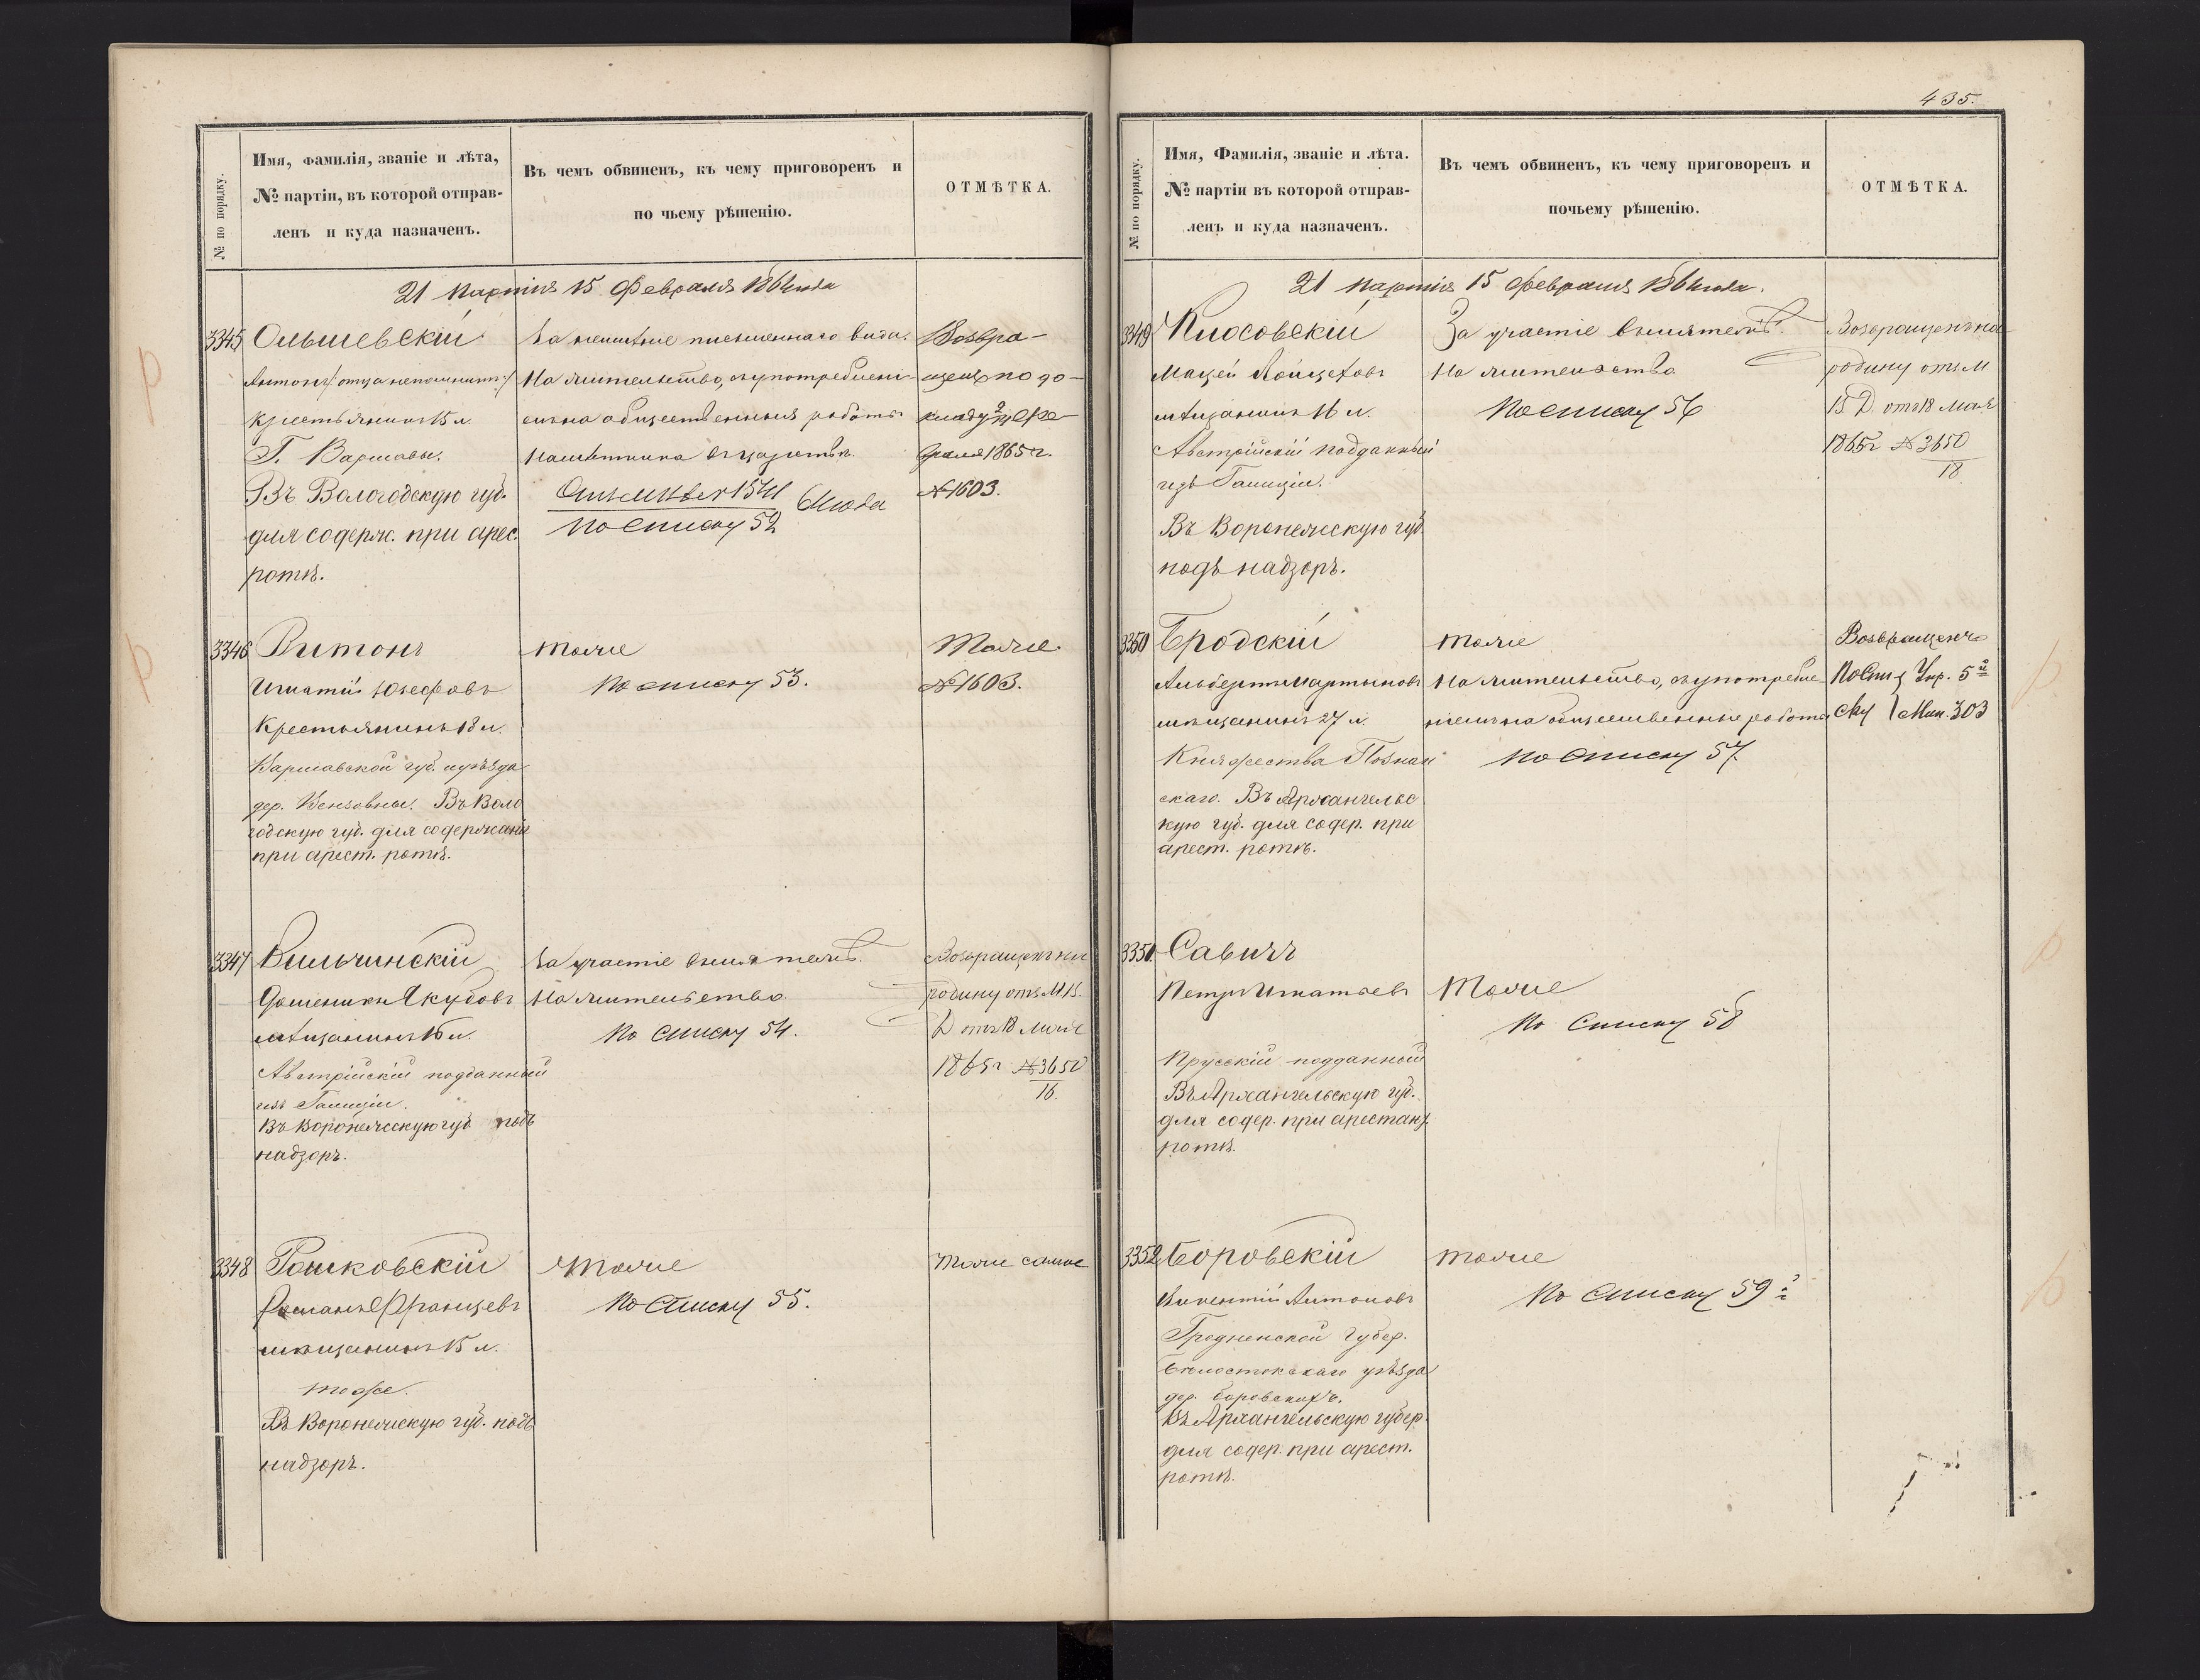 № по порядку.
Имя, фамилія, званіе и лѣта,
№ партіи, въ которой отправ-
ленъ и куда назначенъ.
Въ чемъ обвиненъ, къ чему приговоренъ и
по чьему рѣшенію.
ОТМѢТКА.
21 партія 15 Февраля 1864 года
3345
Ольшевскій
Антонъ /: отца непомнитъ :/
крестьянинъ 15 л.
Г. Варшавы.
Въ Вологодскую губ.
для содерж. при арес.
ротѣ.
За неимѣніе письменнаго вида.
На жительство, съ употреблені-
емъ на общественныя работы
Намѣстника въ царствѣ.
1541 64 года
По списку 52
Возвра-
щенъ по до-
кладу Фе-
враля 1865 г.
№ 1603.
3346
Витонъ
Игнатій Юзефовъ
Крестьянинъ 18 л.
Варшавской губ. и уѣзда
дер. Вензовны. Въ Воло
годскую губ. для содержанія
при арест. ротѣ.
тоже
По списку 53.
Тоже
№ 1603.
3347
Вильчинскій
Доменикъ Якубовъ
мѣщанинъ 16 л.
Австрійскій подданный
изъ Галиціи.
Въ Воронежскую губ подъ
надзоръ.
За участіе въ мятежѣ.
На жительство.
По списку 54.
Возвращенъ на
родину отъ М. В.
Д отъ 18 Мая
1865 г № 3650
18.
3348
Рошковскій
Романъ Францевъ
мѣщанинъ 15 л.
тоже.
Въ Воронежскую губ. подъ
надзоръ.
Тоже
По списку 55.
Тоже самое
435.
№ по порядку.
Имя, Фамилія, званіе и лѣта.
№ партіи въ которой отправ-
ленъ и куда назначенъ.
Въ чемъ обвиненъ, къ чему приговоренъ и
почьему рѣшенію.
ОТМѢТКА.
21 партія 15 Февраля 1864 года.
3349
Клосовскій
Мацей Войцеховъ
мѣщанинъ 16 л.
Австрійскій подданный
изъ Галиціи.
Въ Воронежскую губ.
подъ надзоръ.
За участіе въ мятежѣ.
На жительство
По списку 56
Возвращенъ на
родину отъ М
В. Д. отъ 18 Мая
1865 г № 3650
18.
3350
Бродскій
Альбертъ Мартыновъ
мѣщанинъ 27 л.
Княжества Познан
скаго. Въ Архангельс
кую губ. для содер. при
арест. ротѣ.
тоже
На жительство, съ употребле
ніемъ на общественные работы
По списку 57.
Возвращенъ
По спи Упр. 5й
ску Мин. 303
3351.
Савичъ
Петръ Игнатьевъ
Прусскій подданный
Въ Архангельскую губ.
для содер. при арестанц.
ротѣ.
Тоже
По списку 58
3352
Боровскій
Викентій Антоновъ
Гродненской губер.
Бѣлостокскаго уѣзда
дер. Боровскихъ.
Въ Архангельскую губер.
для содер. при арест.
ротѣ.
тоже
По списку 59